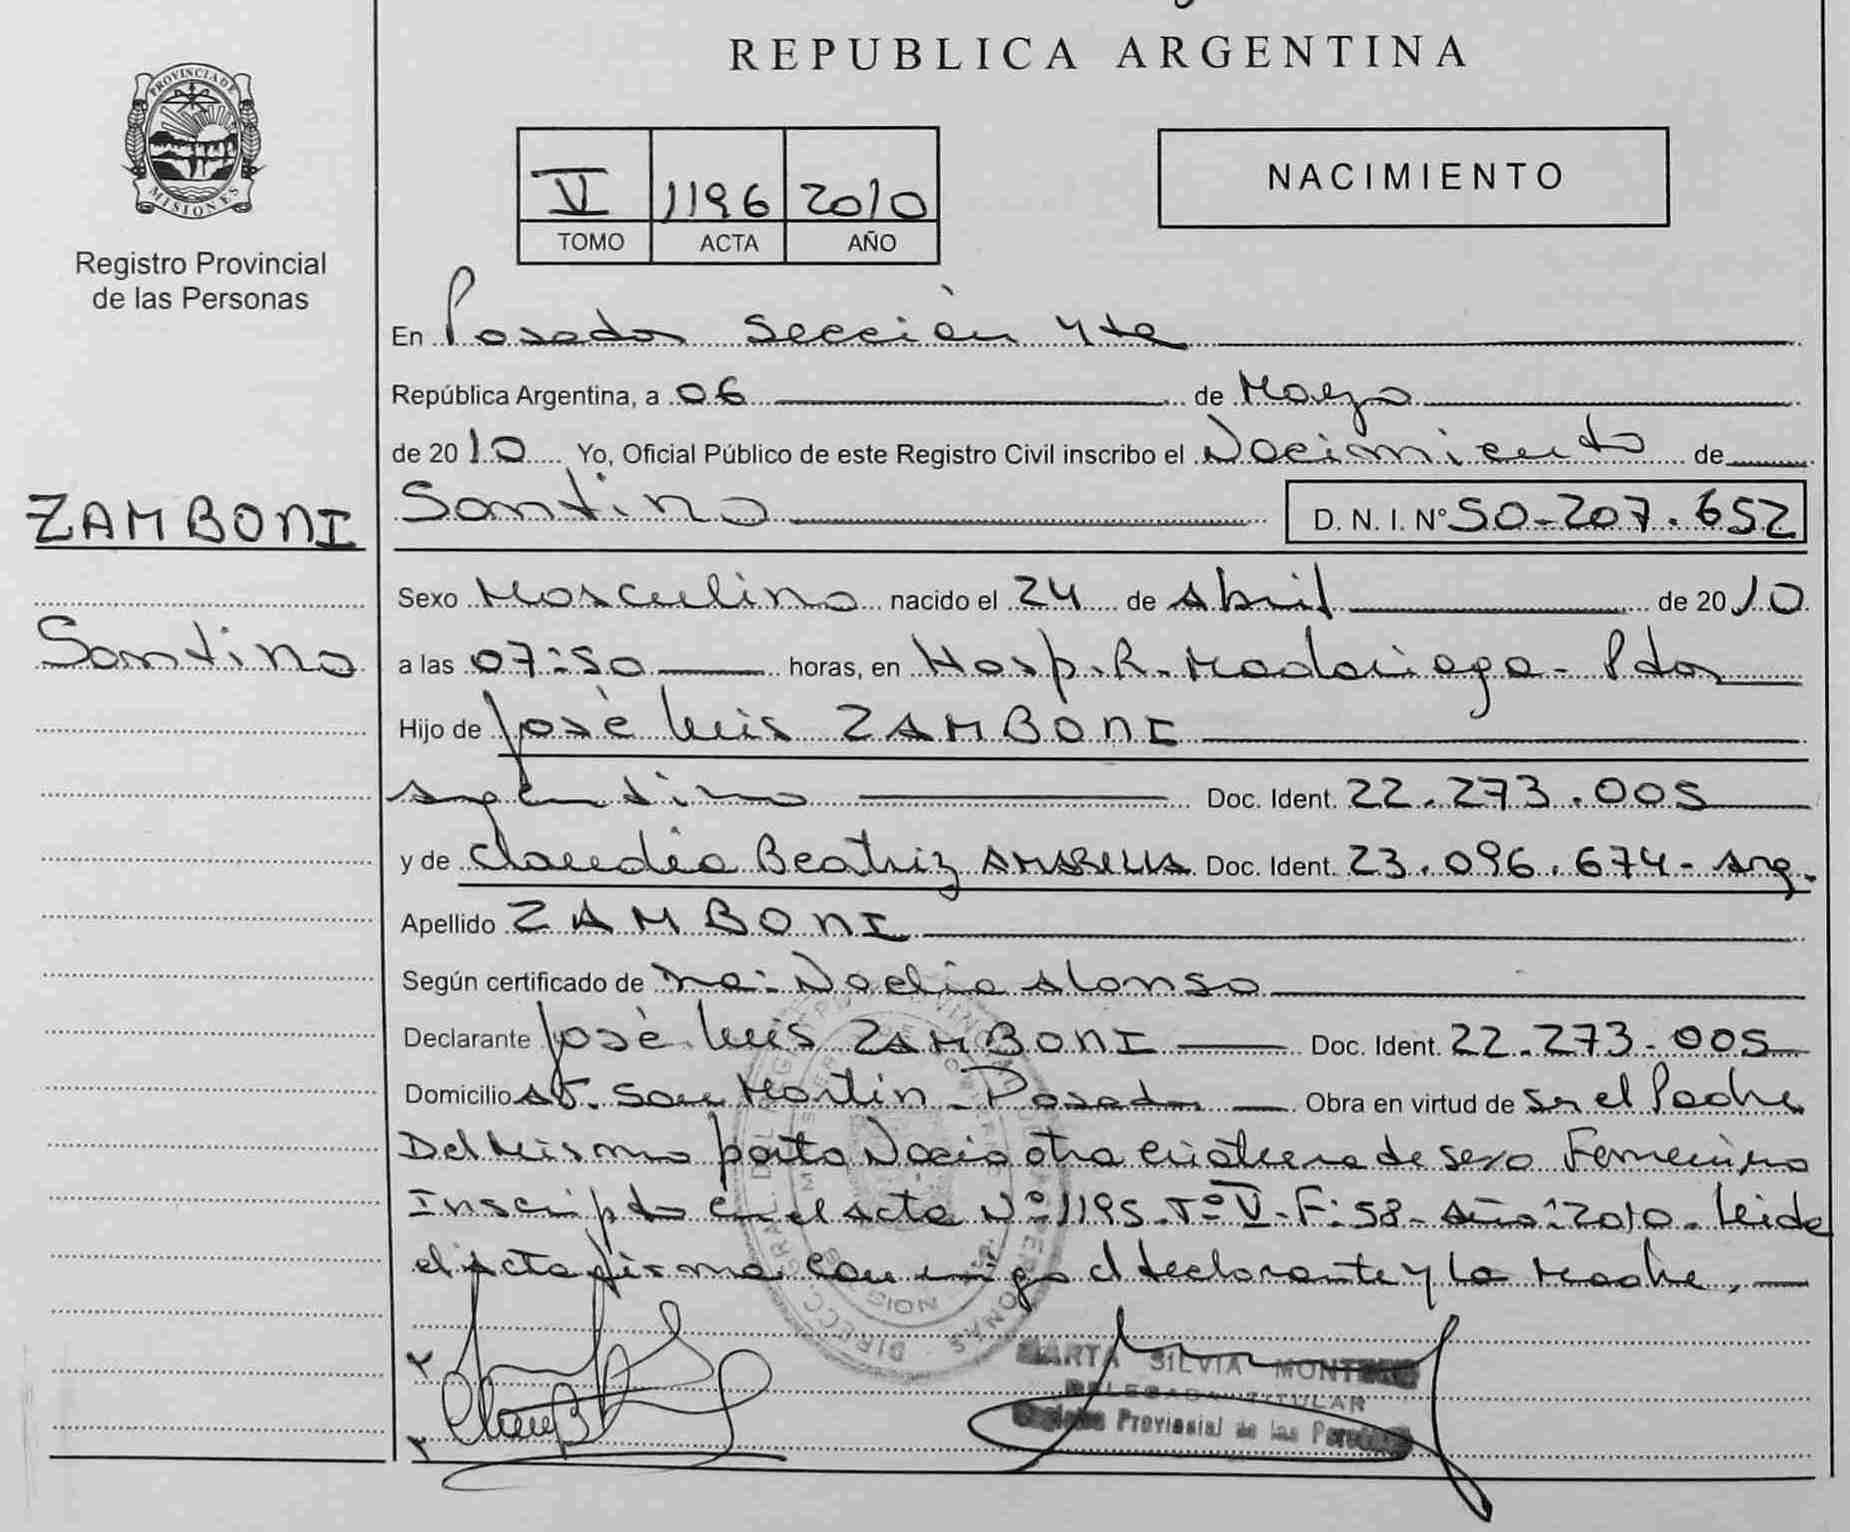 REPUBLICA ARGENTINA
PROVINCIA DE MISIONES
Registro Provincial
de las Personas
V 1196 2010
TOMO ACTA AÑO
NACIMIENTO
En Posadas Sección 4ta
República Argentina, a 06 de Mayo
de 2010 Yo, Oficial Público de este Registro Civil inscribo el Nacimiento de
ZAMBONI
Santino
Santino D. N. I. Nº 50-207.652
Sexo Masculino nacido el 24 de Abril de 2010
a las 07:50 horas, en Hosp. R. Madariaga - Pdas
Hijo de José Luis ZAMBONI
argentino Doc. Ident. 22.273.005
y de Claudia Beatriz Doc. Ident. 23.096.674- Arg.
Apellido ZAMBONI
Según certificado de Noelia Alonso
Declarante José Luis ZAMBONI Doc. Ident. 22.273.005
Domicilio Av. San Martín - Posadas Obra en virtud de Ser el Padre
Del Mismo parto Nació otra criatura de sexo Femenino
Inscripta en el acta Nº 1195-Tº V-F: 58- Año: 2010. Leida
el acta firma conmigo el declarante y la Madre,
MARTA SILVIA
DELEGADA TITULAR
Provincial de las Personas